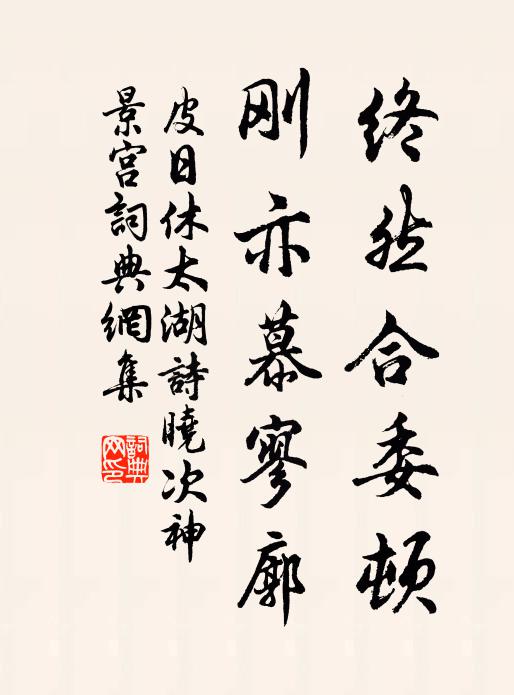 终然合委顿
刚亦慕寥廓
皮日休太湖詩曉次神
景宮詞典網集
詞典網印